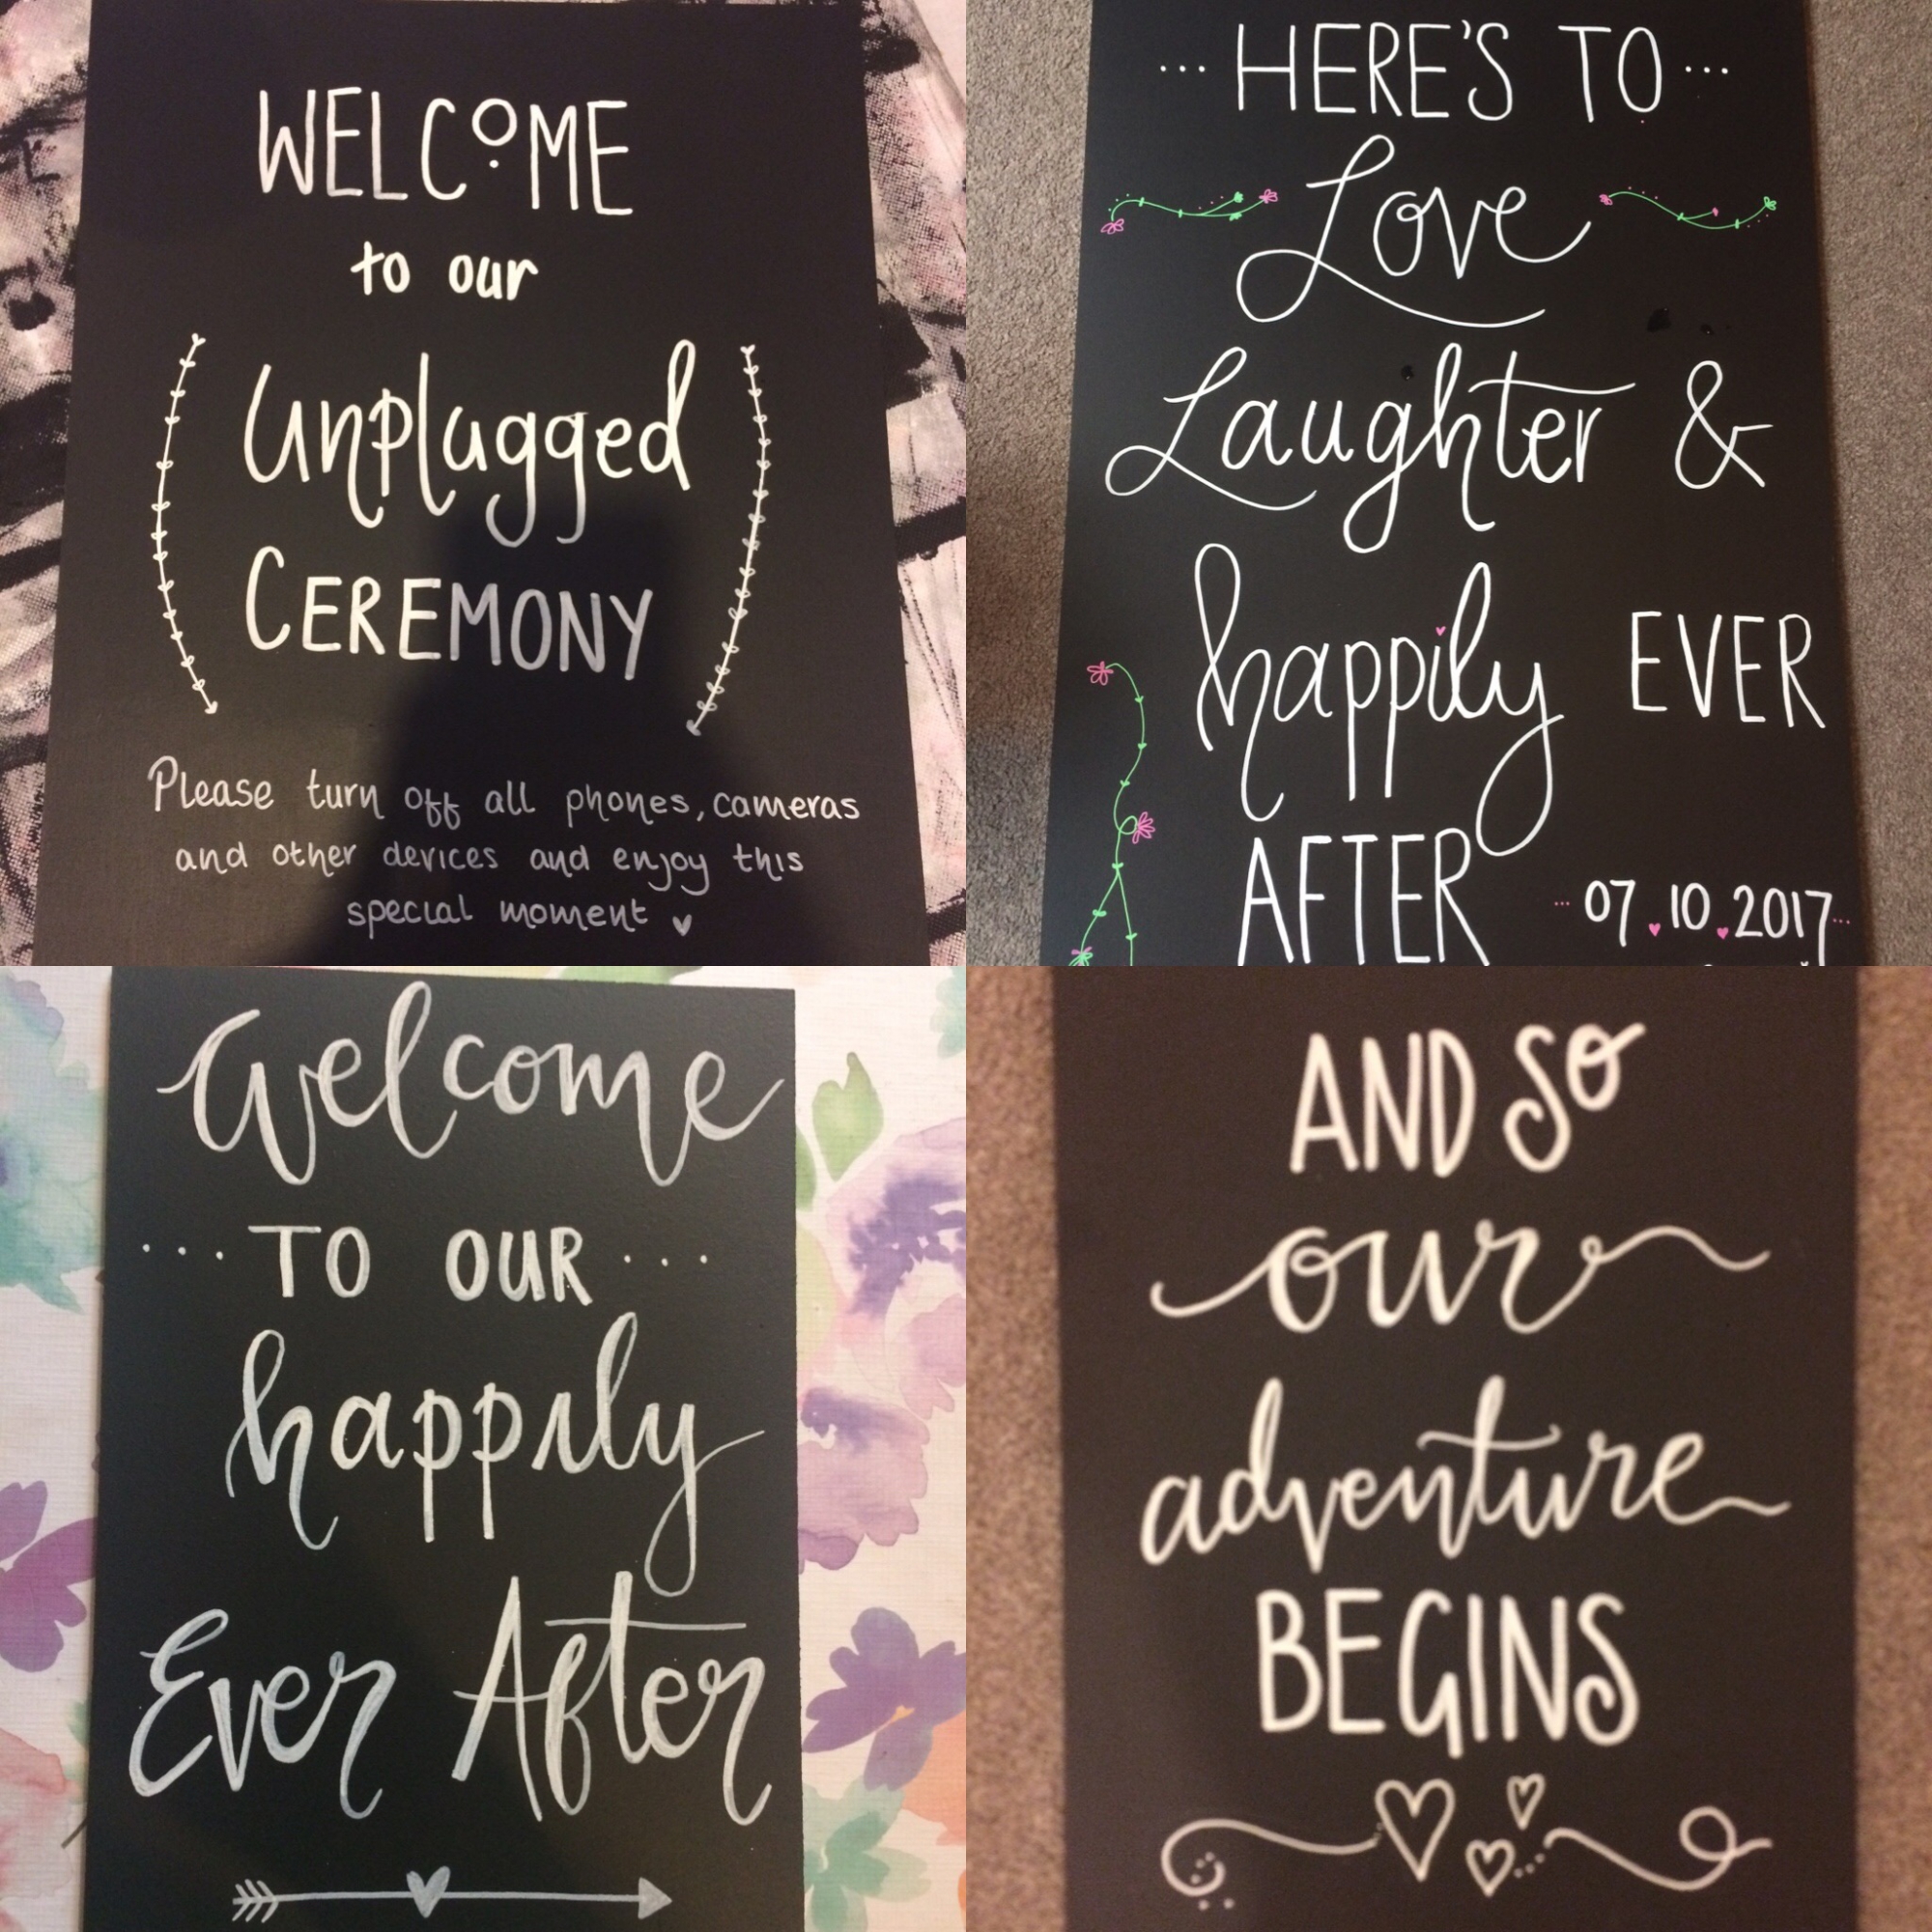 WELCOME
to our
Unplugged
CEREMONY
Please turn off all phones, cameras
and other devices and enjoy this
special moment
... HERE'S TO ...
Love
Laughter &
happily EVER
AFTER
... 07.10.2017...
Welcome
... TO OUR ...
happily
Ever After
AND SO
our
adventure
BEGINS